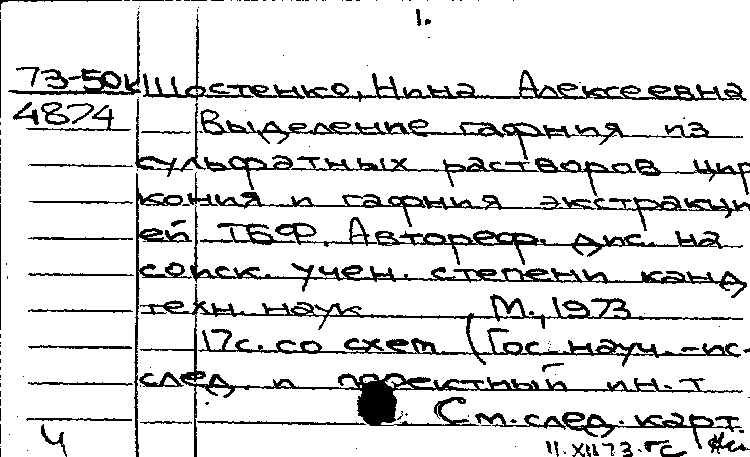 1.
73-50к Шостенко, Нина Алексеевна
4874 Выделение гафния из
сульфатных растворов цир
кония и гафния экстракци
ей ТБФ. Автореф. дис. на
соиск. учен. степени канд
техн. наук М., 1973
17с. со схем (Гос. науч.-ис-
след. и проектный ин-т
См. след. карт.
Ч
11.XII 73.